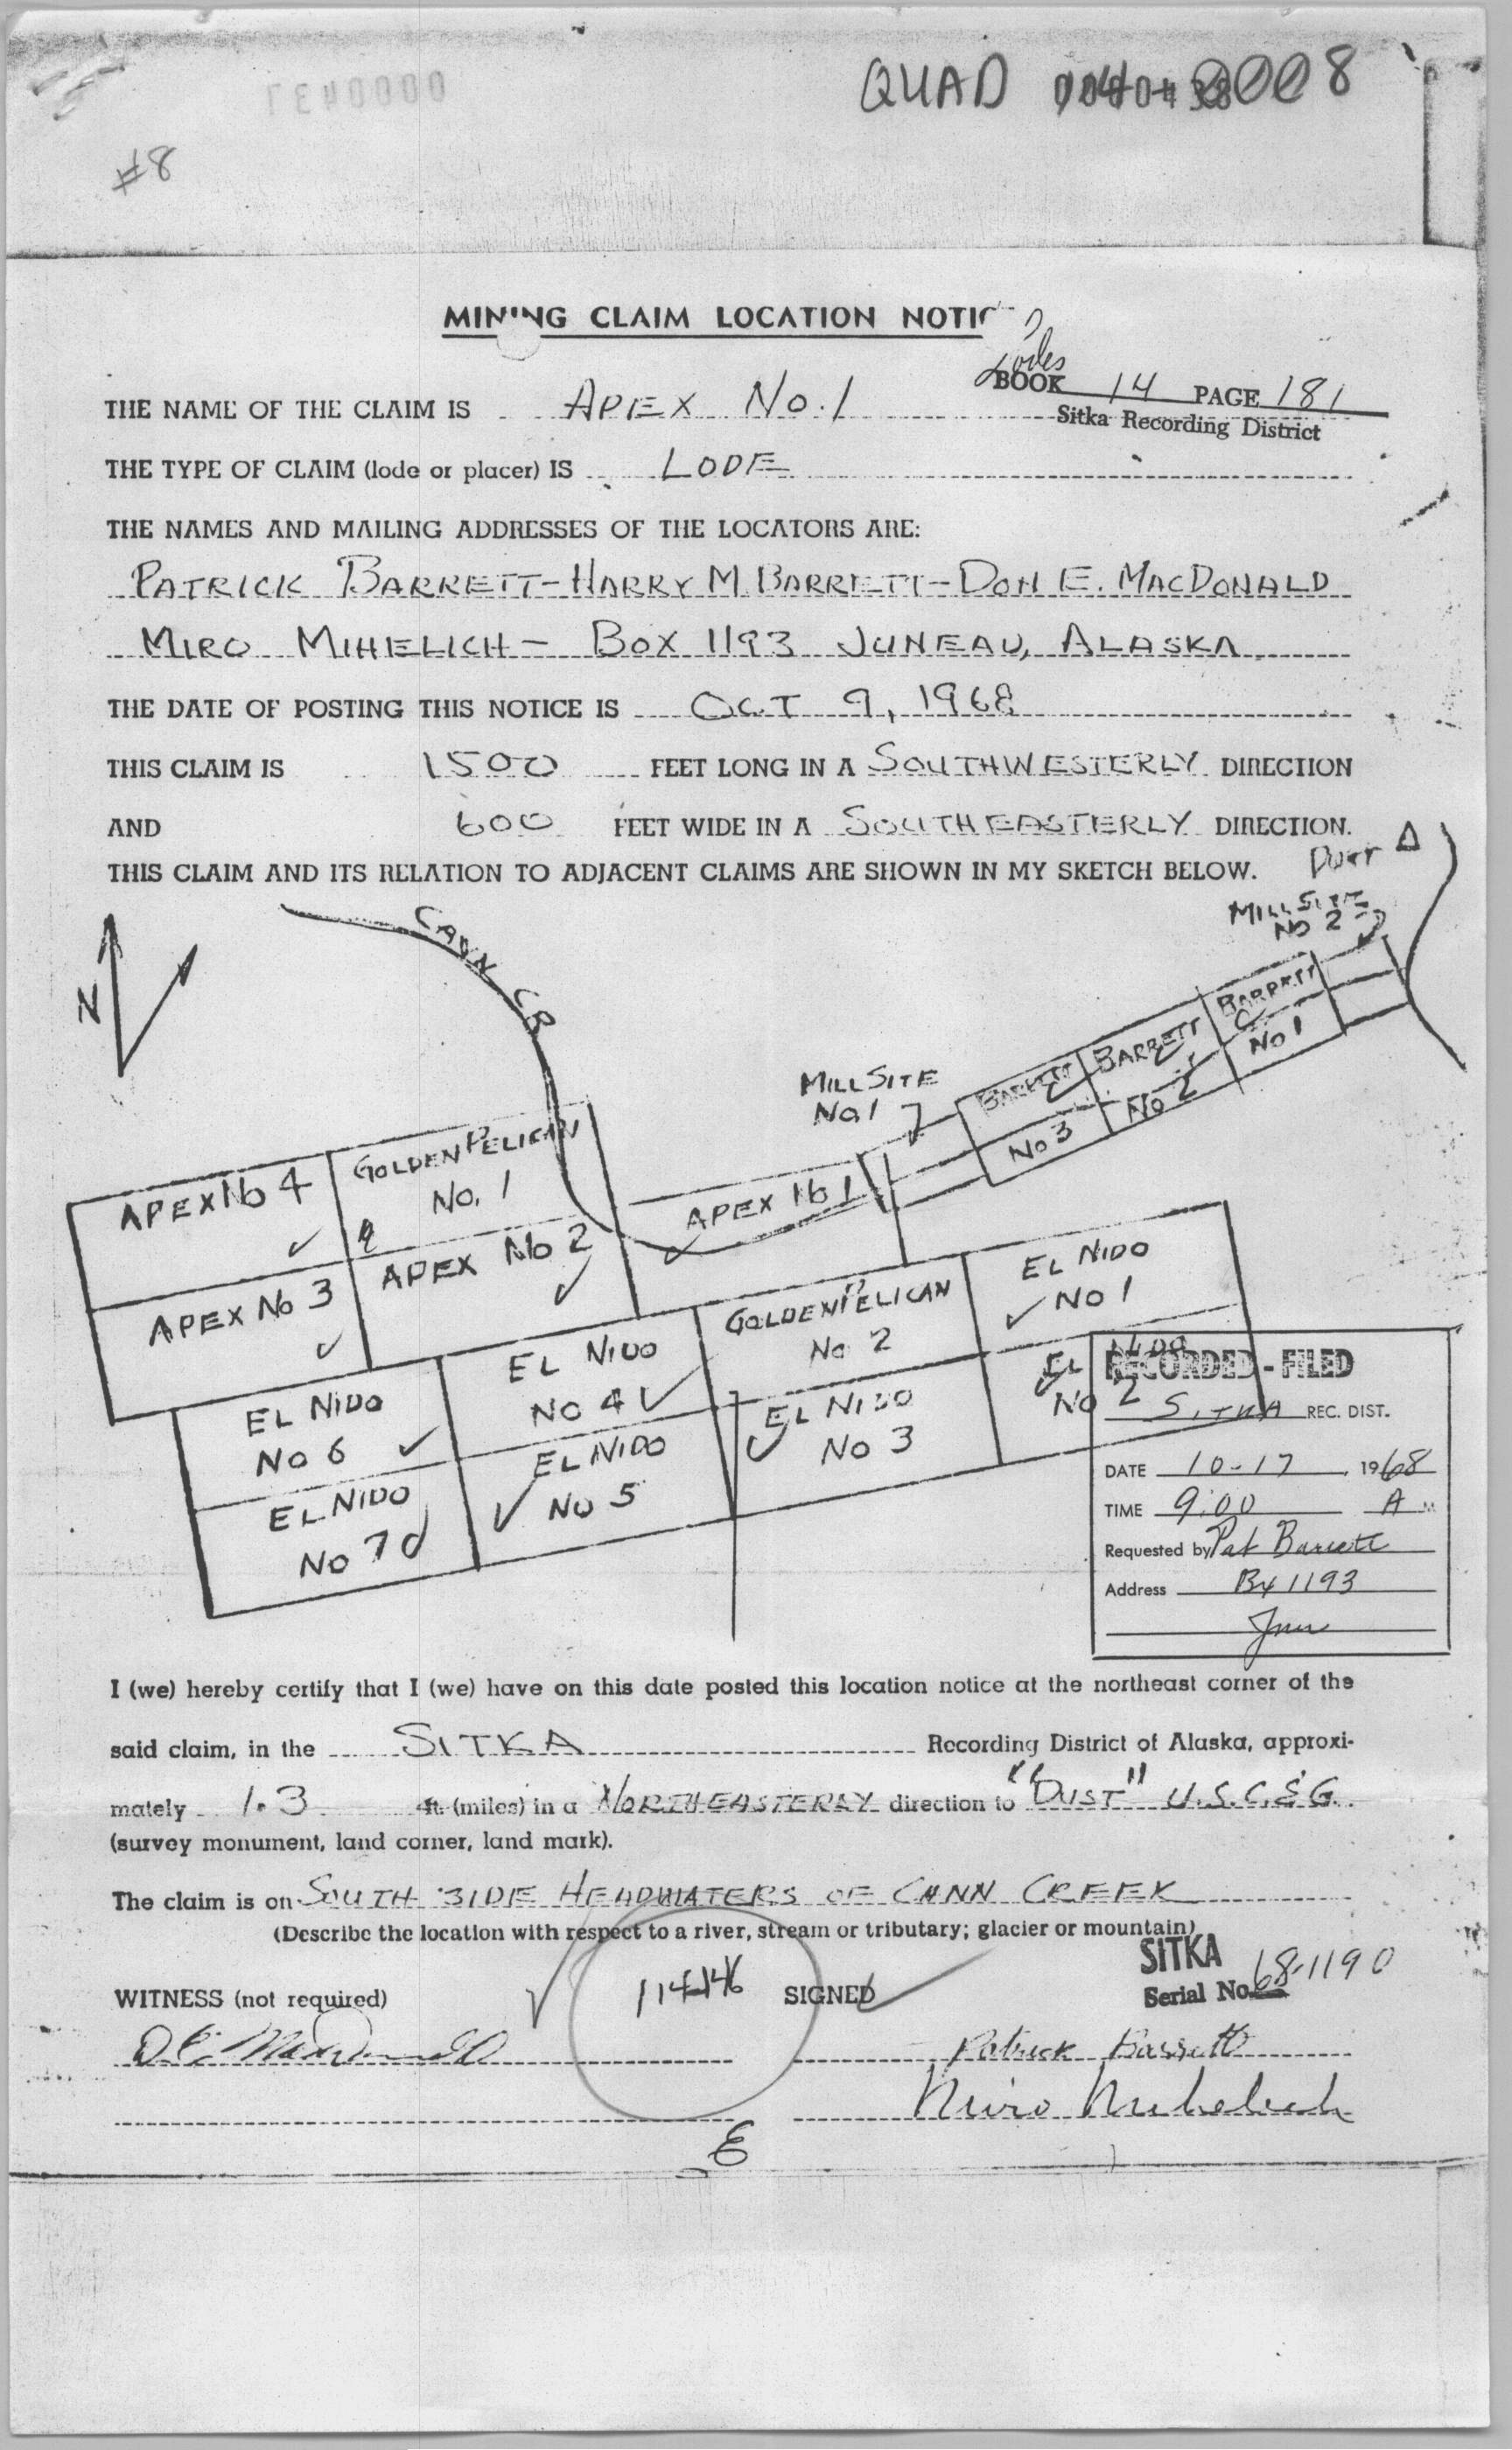 QUAD
8
#8
MINING CLAIM LOCATION NOTIC
Lodes
BOOK 14 PAGE 181
Sitka Recording District
THE NAME OF THE CLAIM IS APEX No. 1
THE TYPE OF CLAIM (lode or placer) IS LODE
THE NAMES AND MAILING ADDRESSES OF THE LOCATORS ARE:
PATRICK BARRETT - HARRY M BARRETT - DON E. MACDONALD
MIRO MIHELICH - BOX 1193 JUNEAU, ALASKA
THE DATE OF POSTING THIS NOTICE IS OCT 9, 1968
THIS CLAIM IS 1500 FEET LONG IN A SOUTHWESTERLY DIRECTION
AND 600 FEET WIDE IN A SOUTHEASTERLY DIRECTION.
THIS CLAIM AND ITS RELATION TO ADJACENT CLAIMS ARE SHOWN IN MY SKETCH BELOW.
N
CANN CR
MILL SITE
No 2
MILL SITE
No 1
BARRETT
No 3
BARRETT
No 2
BARRETT
No 1
APEX No 4
GOLDEN PELICAN
No. 1
APEX No 1
APEX No 3
APEX No 2
EL NIDO
No 6
EL NIDO
No 4
GOLDEN PELICAN
No 2
EL NIDO
No 1
EL NIDO
No 7
EL NIDO
No 5
EL NIDO
No 3
EL NIDO
No 2
RECORDED - FILED
SITKA REC. DIST.
DATE 10-17 1968
TIME 9:00 A M
Requested by Pat Barrett
Address Bx 1193
Jnu
I (we) hereby certify that I (we) have on this date posted this location notice at the northeast corner of the
said claim, in the SITKA Recording District of Alaska, approxi-
mately 1.3 ft. (miles) in a NORTHEASTERLY direction to "DUST" U.S.C.&G.
(survey monument, land corner, land mark).
The claim is on SOUTH SIDE HEADWATERS OF CANN CREEK
(Describe the location with respect to a river, stream or tributary; glacier or mountain)
SITKA
Serial No. 68-1190
WITNESS (not required) 114-146 SIGNED
D.E. MacDonald Patrick Barrett
Miro Mihelich